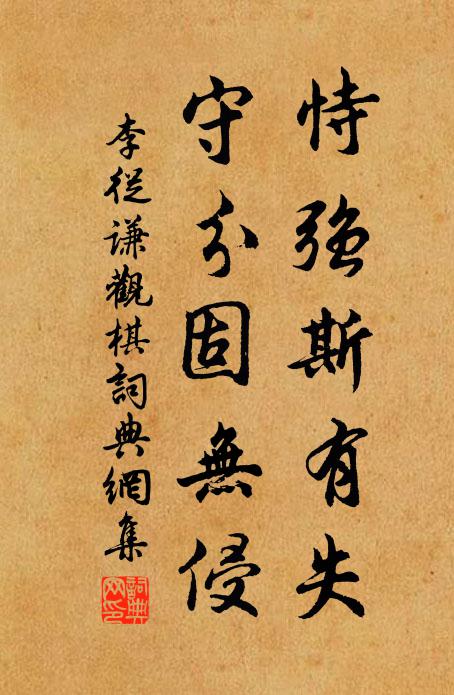 恃強斯有失
守分固無侵
李從謙觀棋詞典網集
詞典网印